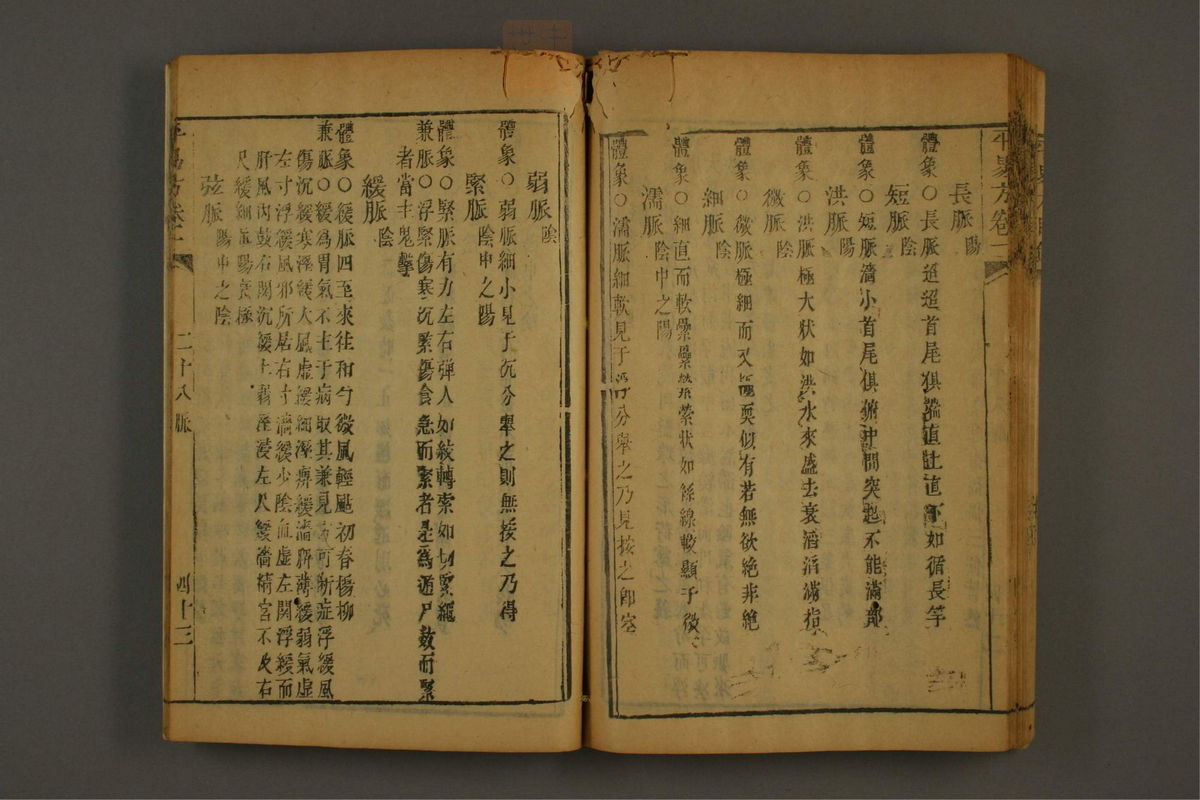 長脈陽
體象○長脈迢迢首尾俱端直上直下如循長竿
短脈陰
體象○短脈濇小首尾俱俯中間突起不能滿部
洪脈陽
體象○洪脈極大狀如洪水來盛去衰滔滔滿指
微脈陰
體象○微脈極細而又耎似有若無欲絕非絕
細脈陰
體象○細直而軟縈狀如絲線較顯于微
濡脈陰中之陽
體象○濡脈細軟見于浮分舉之乃見按之卽空
弱脈陰
體象○弱脈細小見于沉分舉之則無按之乃得
緊脈陰中之陽
體象○緊脈有力左右彈人如絞轉索如切緊繩
兼脈○浮緊傷寒沉緊傷食急而緊者是爲遁尸數而緊
者當主鬼擊
緩脈陰
體象○緩脈四至來往和勻微風輕颭初春楊柳
兼脈○緩爲胃氣不主于病取其兼見方可斷症浮緩風
傷沉緩寒溼緩大風虛緩細溼痹緩濇脾薄緩弱氣虛
左寸浮緩風邪所居右寸濇緩少陰血虛左關浮緩而
肝風內鼓右關沉緩土弱溼侵左尺緩濇精宮不及右
尺緩細眞陽衰極
弦脈陽中之陰
方卷二
二十八脈
四十三